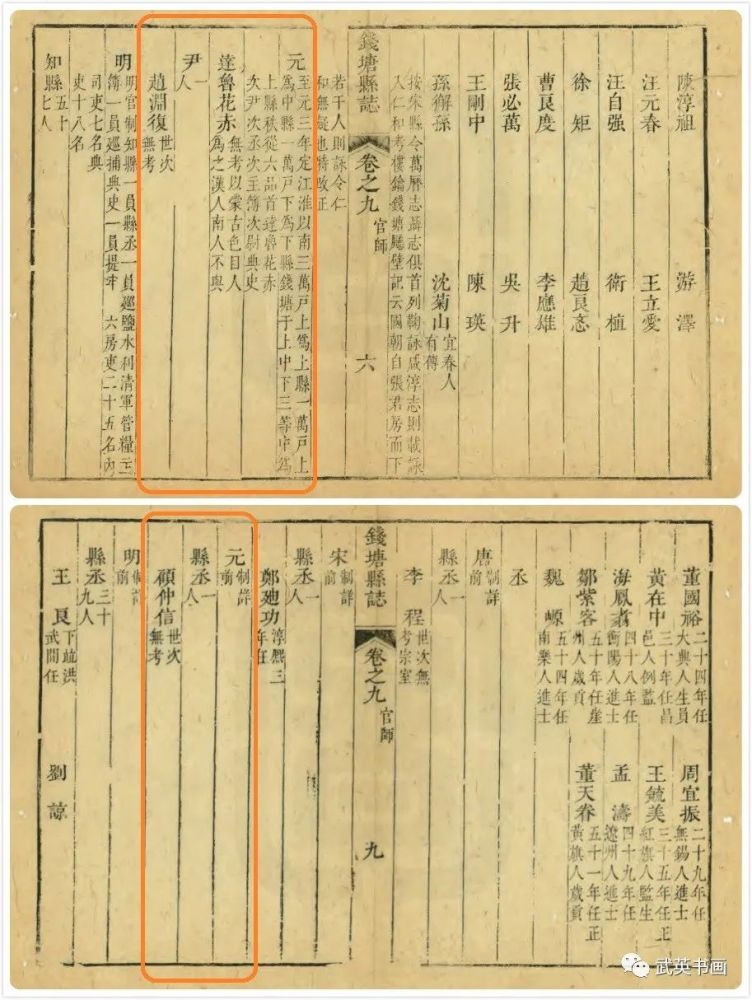 陳淳祖　游澤
汪元春　王立愛
汪自强　衛植
徐矩　趙良忞
曹良度　李應雄
張必萬　吳升
王剛中　陳瑛
孫獬孫　沈菊山宜春人有傳
按宋縣令萬曆志聶志俱首列鞠詠咸淳志則載詠
又仁和考樓鑰錢塘廳壁記云國朝自張君房而下
錢塘縣誌　卷之九　官師　六
若干人則詠令仁
和無疑也特改正
元至元三年定江淮以南三萬戸上爲上縣一萬戸上
爲中縣一萬戸下爲下縣錢塘于上中下三等中爲
上縣秩從六品首達魯花赤
次尹次丞次主簿次尉典史
達魯花赤無考以蒙古色目人
爲之漢人南人不與
尹一人
趙淵復世次無考
明明官制知縣一員縣丞一員廵鹽水利清軍管糧三
簿一員廵捕典史一員提牢　六房吏二十五名內
司吏七名典
吏十八名
知縣五十七人
董國裕二十四年任大興人生員　周宜振二十九年任無錫人進士
黃在中三十年任昌邑人例監　王毓美三十五年任正紅旗人監生
海鳳翥四十八年任衡陽人進士　孟濤四十九年任遼州人進士
鄒紫客五十年任崖州人歲貢　董天眷五十一年任正黃旗人歲貢
魏㟲五十四年任南樂人進士
丞
唐制詳前
縣丞一人
李程世次無考宗室
錢塘縣誌　卷之九　官師　九
宋制詳前
縣丞一人
鄭廸功淳熈三年任
元制詳前
縣丞一人
顧仲信世次無考
明制詳前
縣丞三十九人
王良下疏洪武間任　劉諒
武英书画